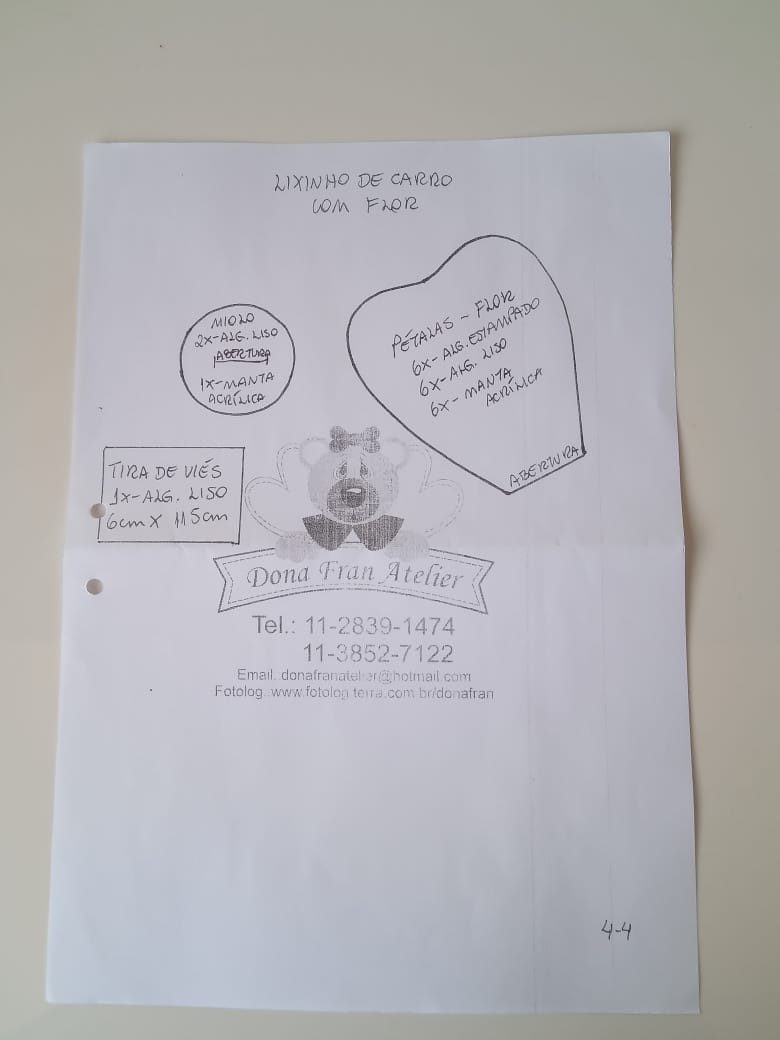 LIXINHO DE CARRO
COM FLOR
MIOLO
2X-ALG. LISO
ABERTURA
1X-MANTA
ACRÍLICA
PÉTALAS - FLOR
6X-ALG. ESTAMPADO
6X-ALG. LISO
6X-MANTA
ACRÍLICA
ABERTURA
TIRA DE VIÉS
1X-ALG. LISO
6cm X 115cm
Dona Fran Atelier
Tel.: 11-2839-1474
11-3852-7122
Email.:donafranatelier@hotmail.com
Fotolog.:www.fotolog.terra.com.br/donafran
4-4